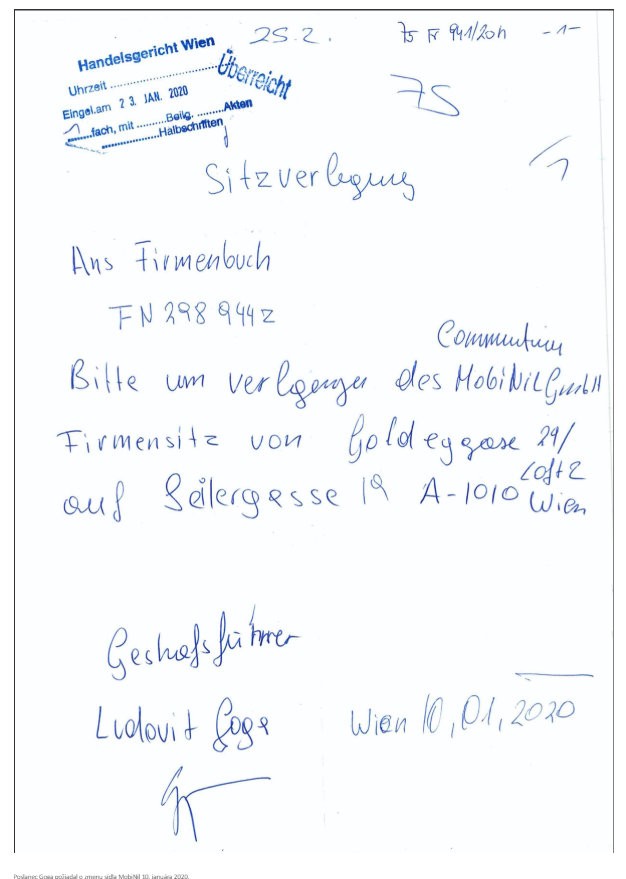 25.2.
75 Fr 941/20h -1-
Handelsgericht Wien
Überreicht
Uhrzeit
Eingel.am 23. JAN. 2020
1 fach, mit Beilg. Akten
Halbschriften
75
Sitzverlegung
1
Ans Firmenbuch
FN 298 944z
Bitte um des MobiNil GmbH
Firmensitz von Goldeggase 29/
Loft 2
auf Seilergesse 19 A-1010 Wien
Geshafsführer
Ludovit Goga Wien 10,01,2020
Poslanec Goga požiadal o zmenu sídla MobiNil 10. januára 2020.